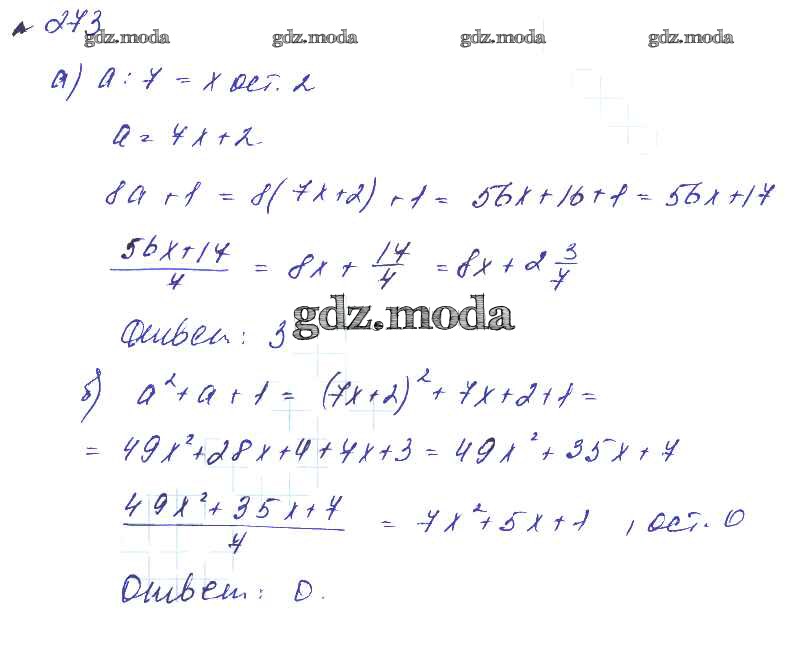 № 273
gdz.moda gdz.moda gdz.moda gdz.moda
а) a : 7 = x ост. 2
a = 7x + 2
8a + 1 = 8(7x+2) + 1 = 56x + 16 + 1 = 56x + 17
(56x+17)/7 = 8x + 17/7 = 8x + 2 3/7
gdz.moda
Ответ: 3
б) a² + a + 1 = (7x+2)² + 7x + 2 + 1 =
= 49x² + 28x + 4 + 7x + 3 = 49x² + 35x + 7
(49x² + 35x + 7)/7 = 7x² + 5x + 1 , ост. 0
Ответ: 0.